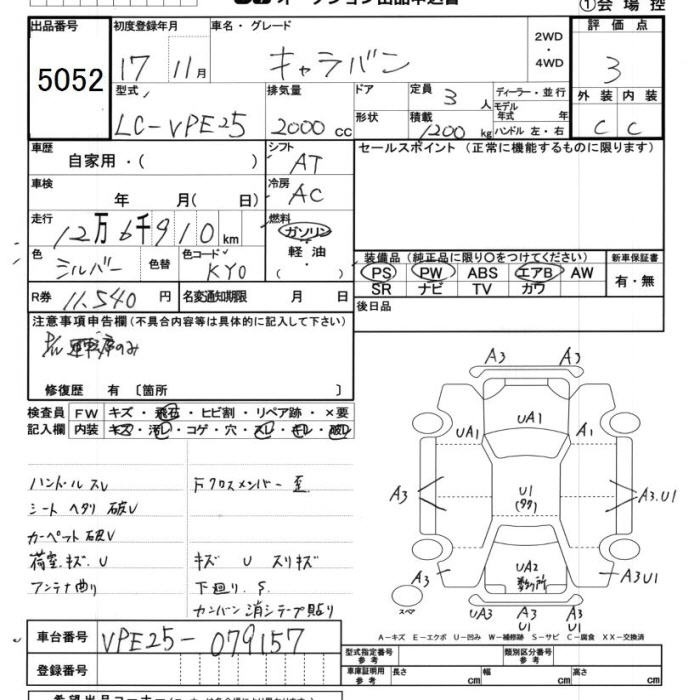 ①会 場 控
出品番号 初度登録年月 車名・グレード 2WD ・ 4WD 評 価 点
5052 17 11月 キャラバン 3
型式 排気量 ドア 定員 3 人 ディーラー・並行 外 装 内 装
LC-VPE25 2000 cc 形状 積載 1200 kg モデル年式 年 ハンドル 左・右 C C
車歴 自家用・( ) シフト AT セールスポイント (正常に機能するものに限ります)
車検 年 月( 日) 冷房 AC
走行 12万6千910 km 燃料 ガソリン
色 シルバー 色替 色コード KY0 軽 油 ( ・ )
装備品 (純正品に限り○をつけてください) 新車保証書
PS PW ABS エアB AW 有・無
SR ナビ TV カワ
R券 11,540 円 名変通知期限 月 日 後日品
注意事項申告欄(不具合内容等は具体的に記入して下さい)
P/W 運転席のみ
修復歴 有 〔箇所 〕
検査員 FW キズ・飛石・ヒビ割・リペア跡・×要
記入欄 内装 キズ・汚レ・コゲ・穴・スレ・キレ・破レ
A3 A3
UA1 UA1 A1
A3 U1 A3.U1
(タワ)
A3 UA2 A3U1
数ヶ所
スペア UA3 A3 A3
U1 U1
ハンドルスレ Fクロスメンバー歪
シートヘタリ 破レ
カーペット破レ
荷室キズ.U キズ U スリキズ
アンテナ曲り 下廻り.S.
カンバン消シテープ貼り
A−キズ E−エクボ U−凹み W−補修跡 S−サビ C−腐食 XX−交換済
車台番号 VPE25-079157
登録番号
型式指定番号 参 考 類別区分番号 参 考
車庫証明用 参 考 長さ cm 幅 cm 高さ cm